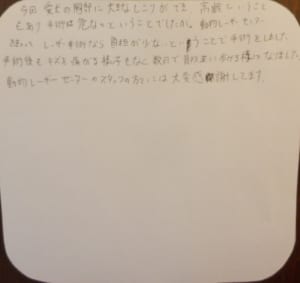 今回 愛犬の胸部に大きなしこりができ、高齢ということ
もあり 手術は危ないということでしたが、動物レーザーセンター
レーザー手術なら 負担が少ないということで手術をしました。
手術後もキズを痛がる様子もなく 数日で 歩ける様になりました。
動物レーザーセンターのスタッフの方々には大変感謝してます。